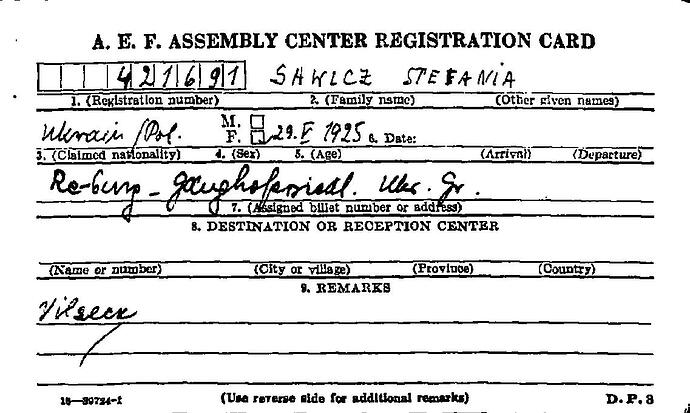 A. E. F. ASSEMBLY CENTER REGISTRATION CARD
421691 SAWICZ STEFANIA
1. (Registration number) 2. (Family name) (Other given names)
Ukrain/Pol. M. F. 29.V 1925 6. Date:
3. (Claimed nationality) 4. (Sex) 5. (Age) (Arrival) (Departure)
Re-burg - Ganghofersiedl. Ukr. Gr.
7. (Assigned billet number or address)
8. DESTINATION OR RECEPTION CENTER
(Name or number) (City or village) (Province) (Country)
9. REMARKS
Vilseck
16—39724-1 (Use reverse side for additional remarks) D.P. 3